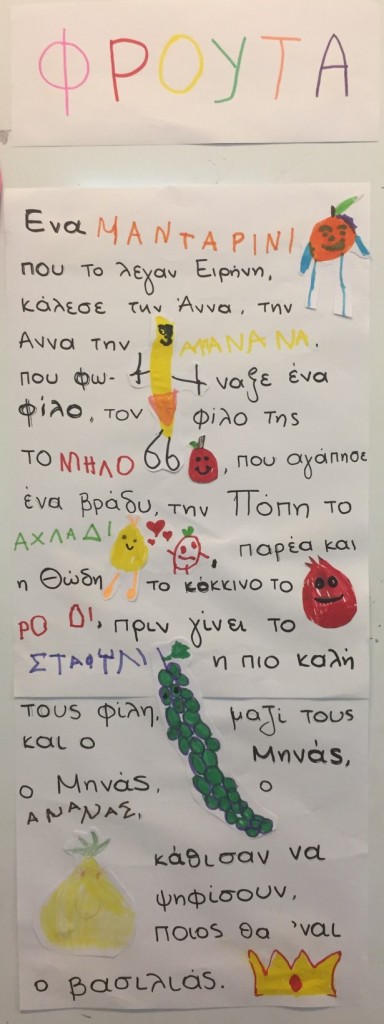 ΦΡΟΥΤΑ
Ενα ΜΑΝΤΑΡΙΝΙ
που το λεγαν Ειρήνη,
κάλεσε την Άννα, την
Αννα την ΜΠΑΝΑΝΑ.
που φω- ναξε ένα
φίλο, τον φίλο της
το ΜΗΛΟ , που αγάπησε
ένα βράδυ, την Πόπη το
ΑΧΛΑΔΙ , παρέα και
η Θώδη το κόκκινο το
ΡΟΔΙ, πριν γίνει το
ΣΤΑΦΥΛΙ η πιο καλή
τους φίλη, μαζί τους
και ο Μηνάς,
ο Μηνάς, ο
ΑΝΑΝΑΣ,
κάθισαν να
ψηφίσουν,
ποιος θα 'ναι
ο βασιλιάς.